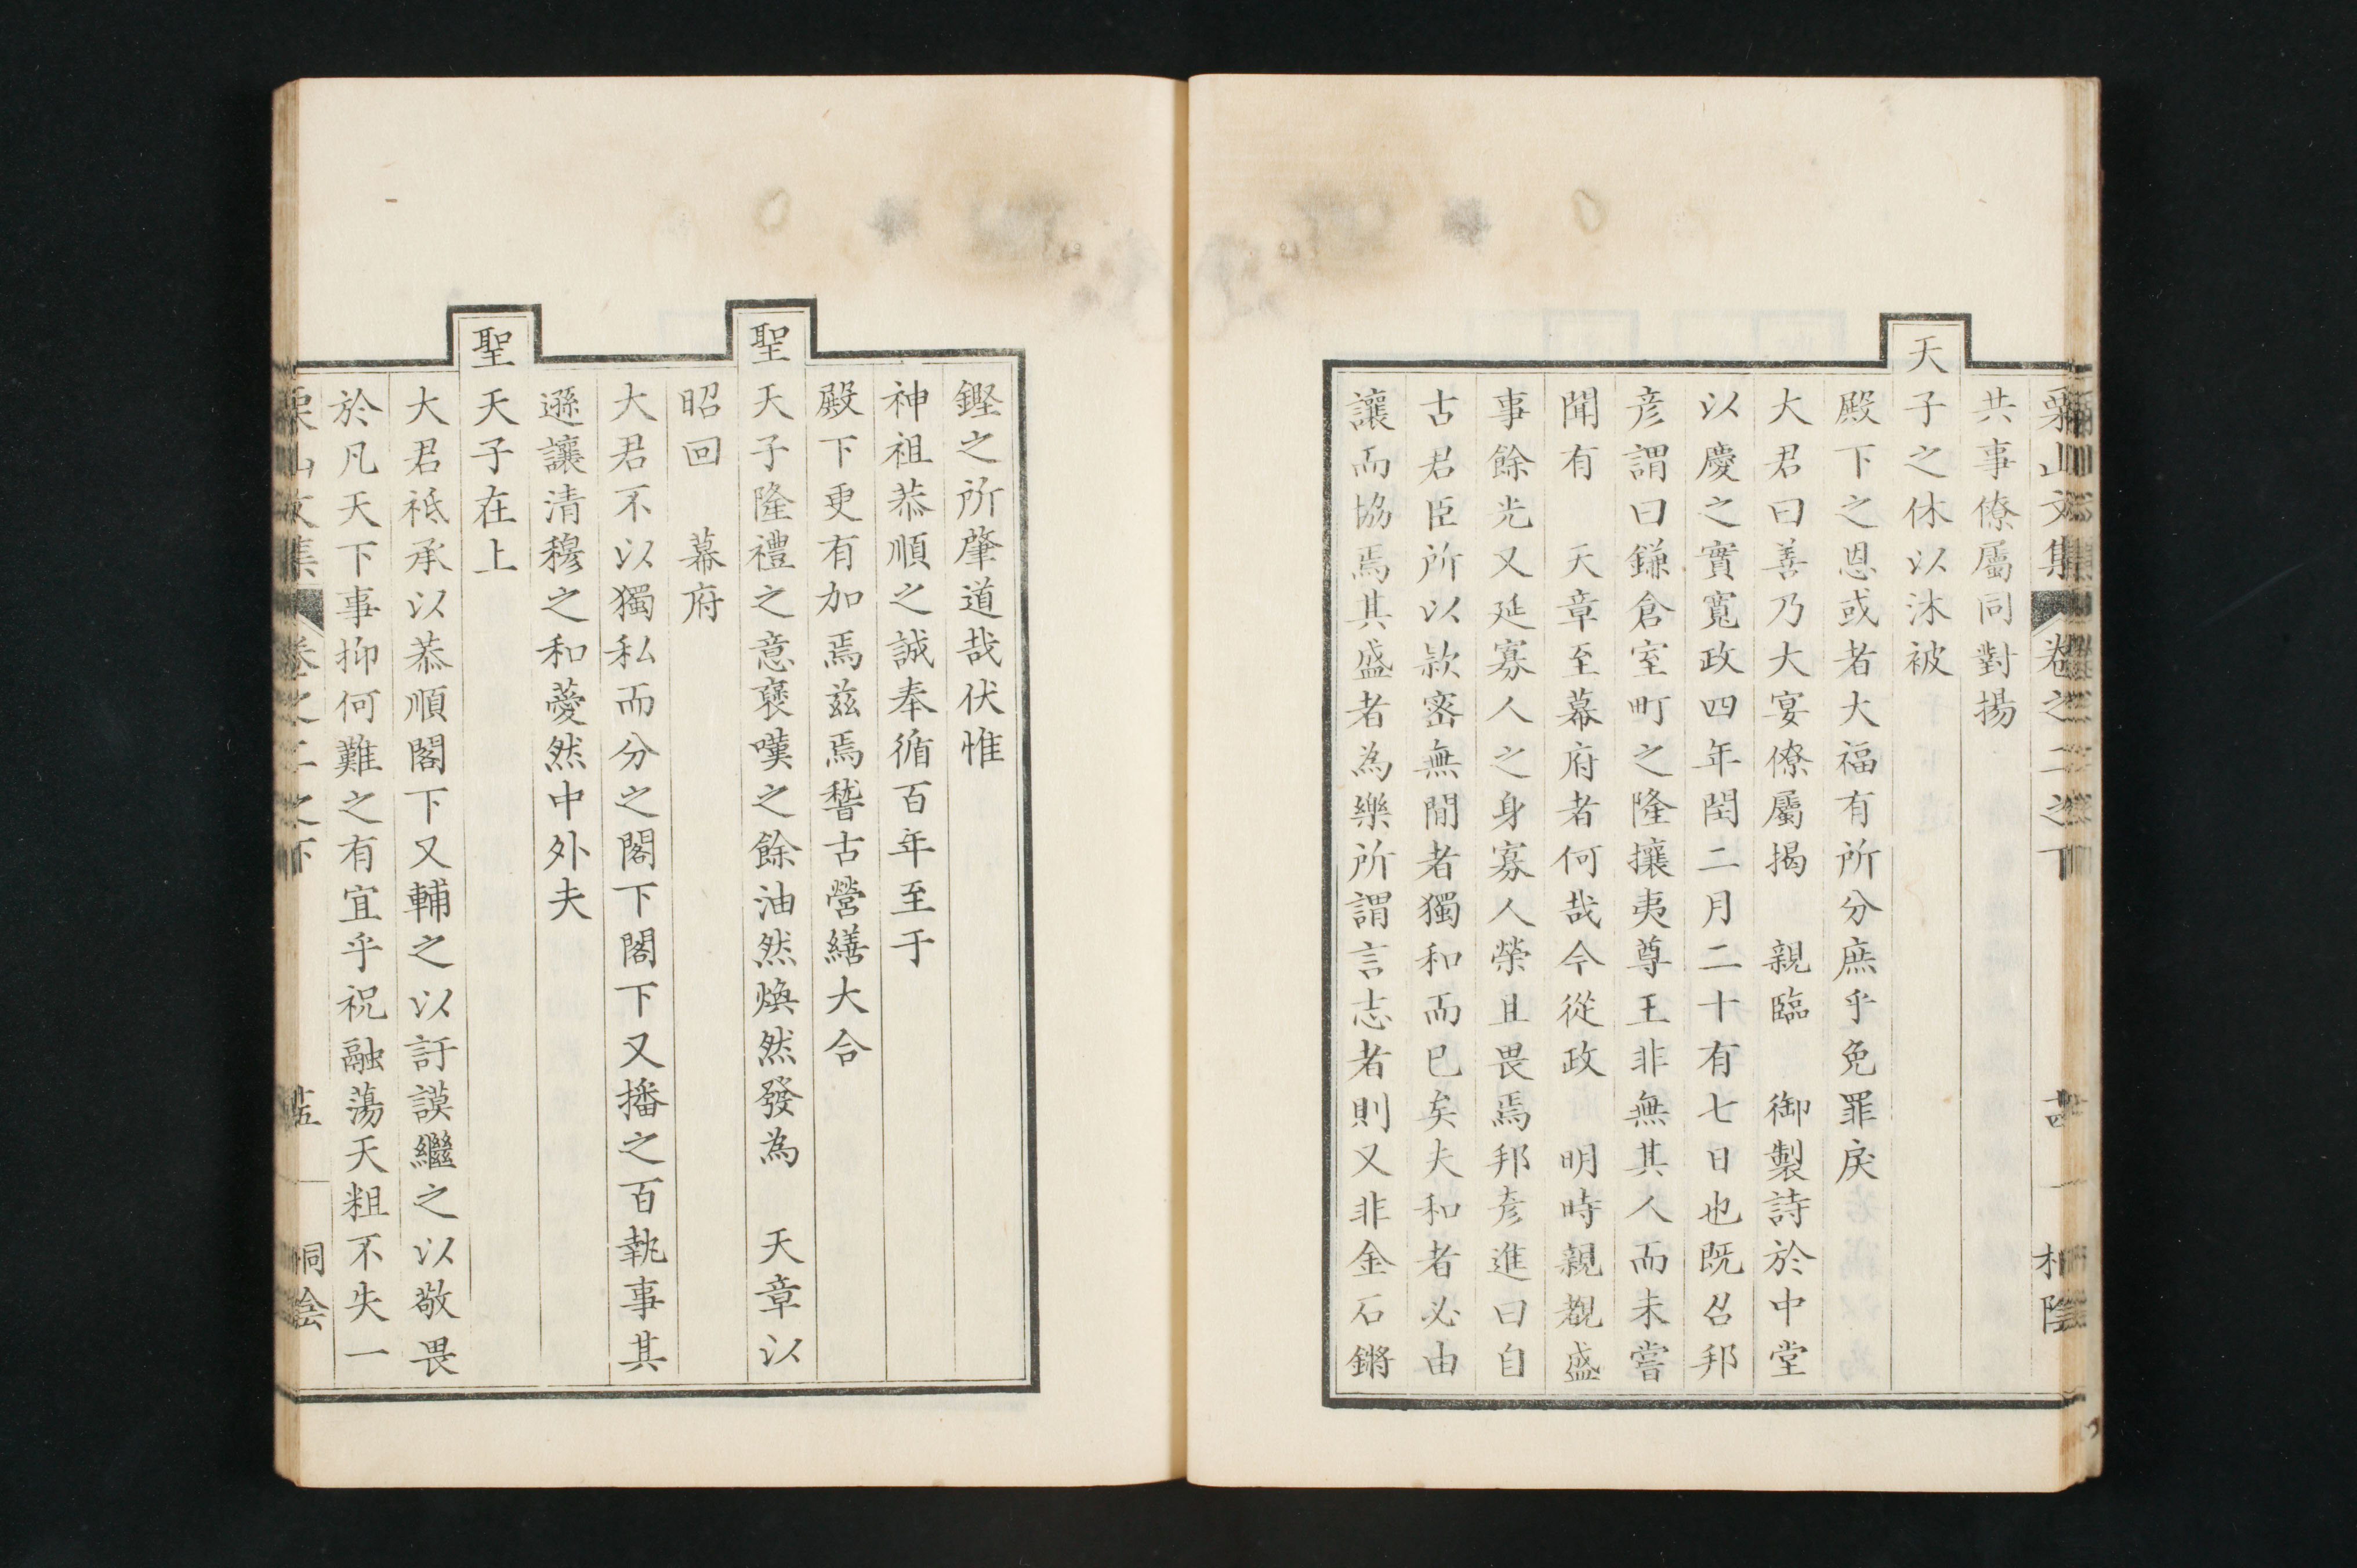 栗山文集 卷之二之下 十四 栖陰
共事僚屬同對揚
天子之休以沐被
殿下之恩或者大福有所分庶乎免罪戾
大君曰善乃大宴僚屬揭 親臨 御製詩於中堂
以慶之實寬政四年閏二月二十有七日也既召邦
彦謂曰鎌倉室町之隆攘夷尊王非無其人而未嘗
聞有 天章至幕府者何哉今從政 明時親覩盛
事餘光又延寡人之身寡人榮且畏焉邦彦進曰自
古君臣所以歘密無間者獨和而已矣夫和者必由
讓而協焉其盛者為樂所謂言志者則又非金石鏘
鏗之所肇道哉伏惟
神祖恭順之誠奉循百年至于
殿下更有加焉茲焉稽古營繕大合
聖天子隆禮之意褒嘆之餘油然煥然發為 天章以
昭回 幕府
大君不以獨私而分之閣下閣下又播之百執事其
遜讓清穆之和薆然中外夫
聖天子在上
大君祗承以恭順閣下又輔之以訏謨繼之以敬畏
於凡天下事抑何難之有宜乎祝融蕩天粗不失一
栗山文集 卷之二之下 十五 栖陰